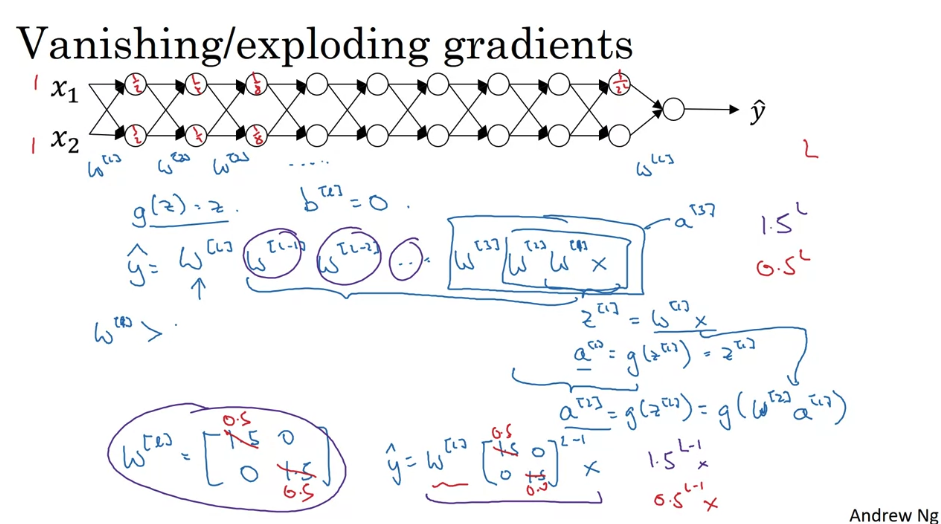 Vanishing/exploding gradients
1 x₁ ½ ¼ ⅛ 1/2ᴸ
ŷ
1 x₂ ½ ¼ ⅛
w^[1] w^[2] w^[3] ..... w^[L] L
g(z) = z. b^[l] = 0.
ŷ = w^[L] w^[L-1] w^[L-2] ... w^[3] w^[2] w^[1] x a^[3] 1.5^L
0.5^L
z^[1] = w^[1] x
w^[l] >
a^[1] = g(z^[1]) = z^[1]
a^[2] = g(z^[2]) = g(w^[2] a^[1])
w^[l] = [1.5 0 0 1.5] 0.5 0.5
ŷ = w^[L] [1.5 0 0 1.5]^L-1 x 0.5 0.5
1.5^L-1 x
0.5^L-1 x
Andrew Ng